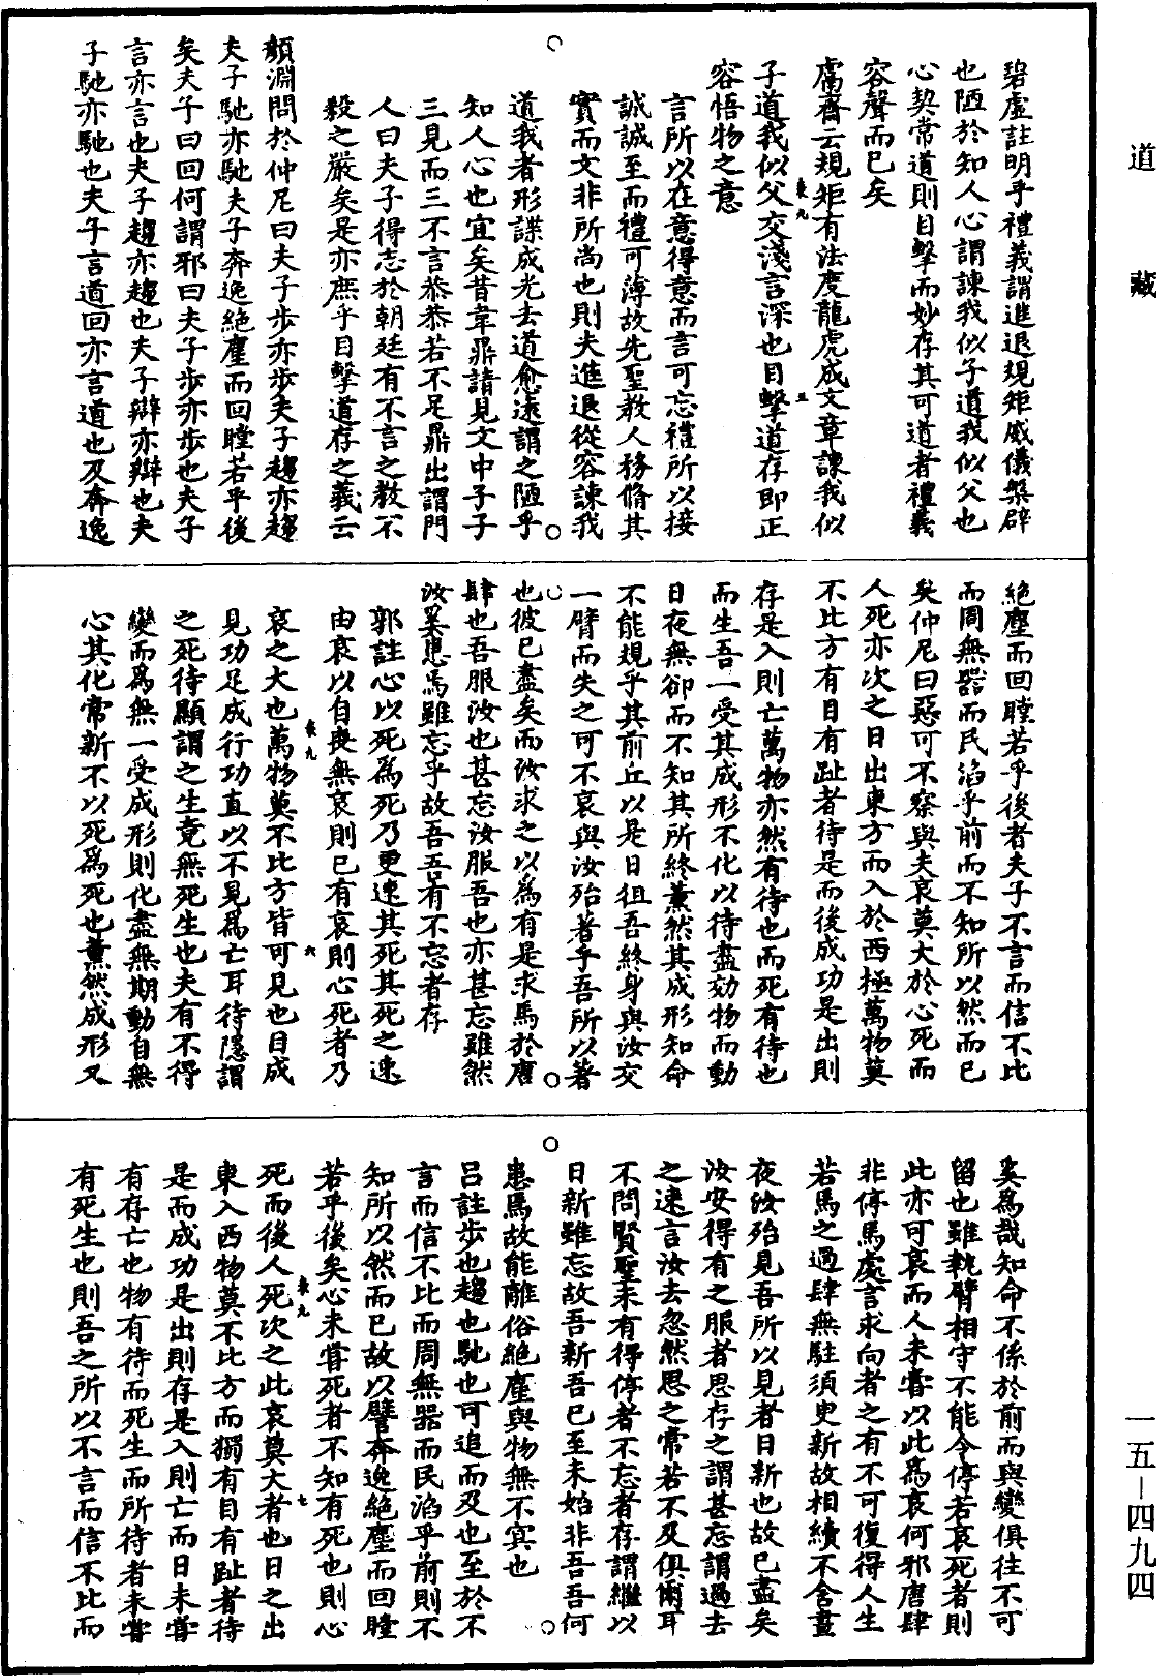 道藏
碧虛註明乎禮義謂進退規矩威儀槃辟
也陋於知人心謂諫我似子道我似父也
心契常道則目擊而妙存其可道者禮義
容聲而已矣
鬳齋云規矩有法度龍虎成文章諫我似
子道我似父交淺言深也目擊道存即正
容悟物之意
言所以在意得意而言可忘禮所以接
誠誠至而禮可薄故先聖教人務脩其
實而文非所尚也則夫進退從容諫我
道我者形諜成光去道愈遠謂之陋乎
知人心也宜矣昔韋鼎請見文中子子
三見而三不言恭恭若不足鼎出謂門
人曰夫子得志於朝廷有不言之教不
殺之嚴矣是亦庶乎目擊道存之義云
顏淵問於仲尼曰夫子步亦步夫子趨亦趨
夫子馳亦馳夫子奔逸絕塵而回瞠若乎後
矣夫子曰回何謂邪曰夫子步亦步也夫子
言亦言也夫子趨亦趨也夫子辯亦辯也夫
子馳亦馳也夫子言道回亦言道也及奔逸
絕塵而回瞠若乎後者夫子不言而信不比
而周無器而民滔乎前而不知所以然而已
矣仲尼曰惡可不察與夫哀莫大於心死而
人死亦次之日出東方而入於西極萬物莫
不比方有目有趾者待是而後成功是出則
存是入則亡萬物亦然有待也而死有待也
而生吾一受其成形不化以待盡効物而動
日夜無卻而不知其所終薰然其成形知命
不能規乎其前丘以是日徂吾終身與汝交
一臂而失之可不哀與汝殆著乎吾所以著
也彼已盡矣而汝求之以為有是求馬於唐
肆也吾服汝也甚忘汝服吾也亦甚忘雖然
汝奚患焉雖忘乎故吾吾有不忘者存
郭註心以死為死乃更速其死其死之速
由哀以自喪無哀則已有哀則心死者乃
哀之大也萬物莫不比方皆可見也目成
見功足成行功直以不見為亡耳待隱謂
之死待顯謂之生竟無死生也夫有不得
變而為無一受成形則化盡無期動自無
心其化常新不以死為死也薰然成形又
奚為哉知命不係於前而與變俱往不可
留也雖執臂相守不能令停若哀死者則
此亦可哀而人未甞以此為哀何邪唐肆
非停馬處言求向者之有不可復得人生
若馬之過肆無駐須臾新故相續不舍晝
夜汝殆見吾所以見者日新也故已盡矣
汝安得有之服者思存之謂甚忘謂過去
之速言汝去忽然思之常若不及俱爾耳
不問賢聖未有得停者不忘者存謂繼以
日新雖忘故吾新吾已至未始非吾吾何
患焉故能離俗絕塵與物無不冥也
呂註步也趨也馳也可追而及也至於不
言而信不比而周無器而民滔乎前則不
知所以然而已故以譬奔逸絕塵而回瞠
若乎後矣心未甞死者不知有死也則心
死而後人死次之此哀莫大者也日之出
東入西物莫不比方而獨有目有趾者待
是而成功是出則存是入則亡而日未甞
有存亡也物有待而死生而所待者未甞
有死生也則吾之所以不言而信不比而
一五－四九四